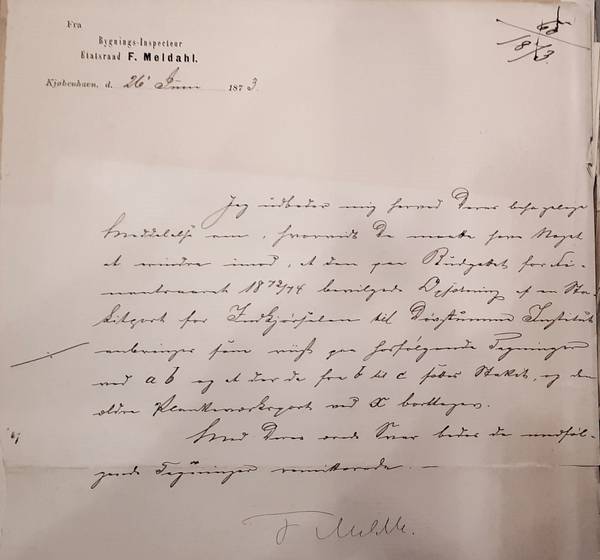 Fra
Bygnings-Inspecteur
Etatsraad F. Meldahl.
Kjøbenhavn, d. 26' Juni 1873.
18/13
Jeg udbeder mig herved Deres behagelige
Meddelelse om, hvorvidt De maatte have Noget
at erindre imod, at den paa Budgettet for Fi-
nantsaaret 1873/74 bevilgede Opsætning af en Sta-
kitport for Indkjørselen til Døvstumme Institut
anbringes som viist paa hosfølgende Tegninger
ved a b og at der da fra b til c sættes Stakit, og den
ældre Plankeværksport ved x borttages.
Med Deres ærede Svar bedes de medføl-
gende Tegninger remitterede. —
F Meldahl.